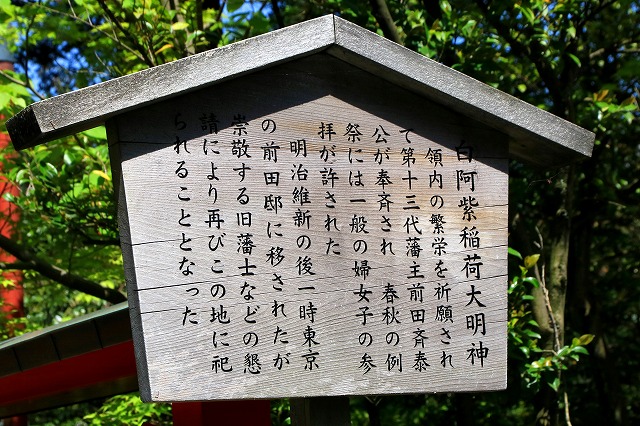 白阿紫稲荷大明神
領内の繁栄を祈願され
て第十三代藩主前田斉泰
公が奉斉され　春秋の例
祭には一般の婦女子の参
拝が許された
明治維新の後一時東京
の前田邸に移されたが
崇敬する旧藩士などの懇
請により再びこの地に祀
られることとなった